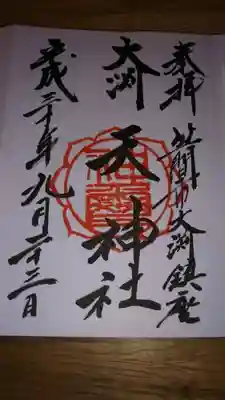 奉拝 笠間市大渕鎮座
大渕
天神社
平成三十年九月二十三日